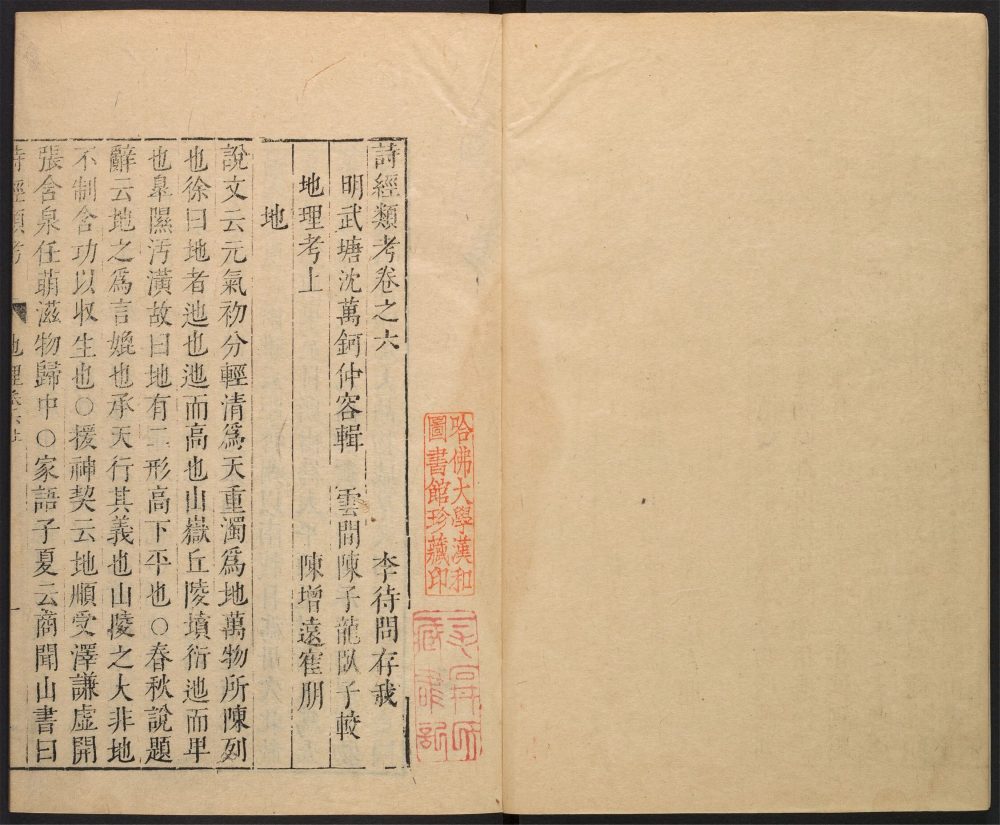 詩經類考卷之六 李待問存我
明武塘沈萬鈳仲容輯 雲間陳子龍臥子較
地理考上 陳增遠隺朋
地
說文云元氣初分輕清爲天重濁爲地萬物所陳列
也徐曰地者迆也迆而高也山嶽丘陵墳衍迆而卑
也皐隰汚潢故曰地有二形高下平也○春秋說題
辭云地之爲言媲也承天行其義也山陵之大非地
不制含功以収生也○援神契云地順受澤謙虛開
張含泉任萌滋物歸中○家語子夏云商聞山書曰
詩經類考 地理卷六上 一
哈佛大學漢和
圖書館珍藏印